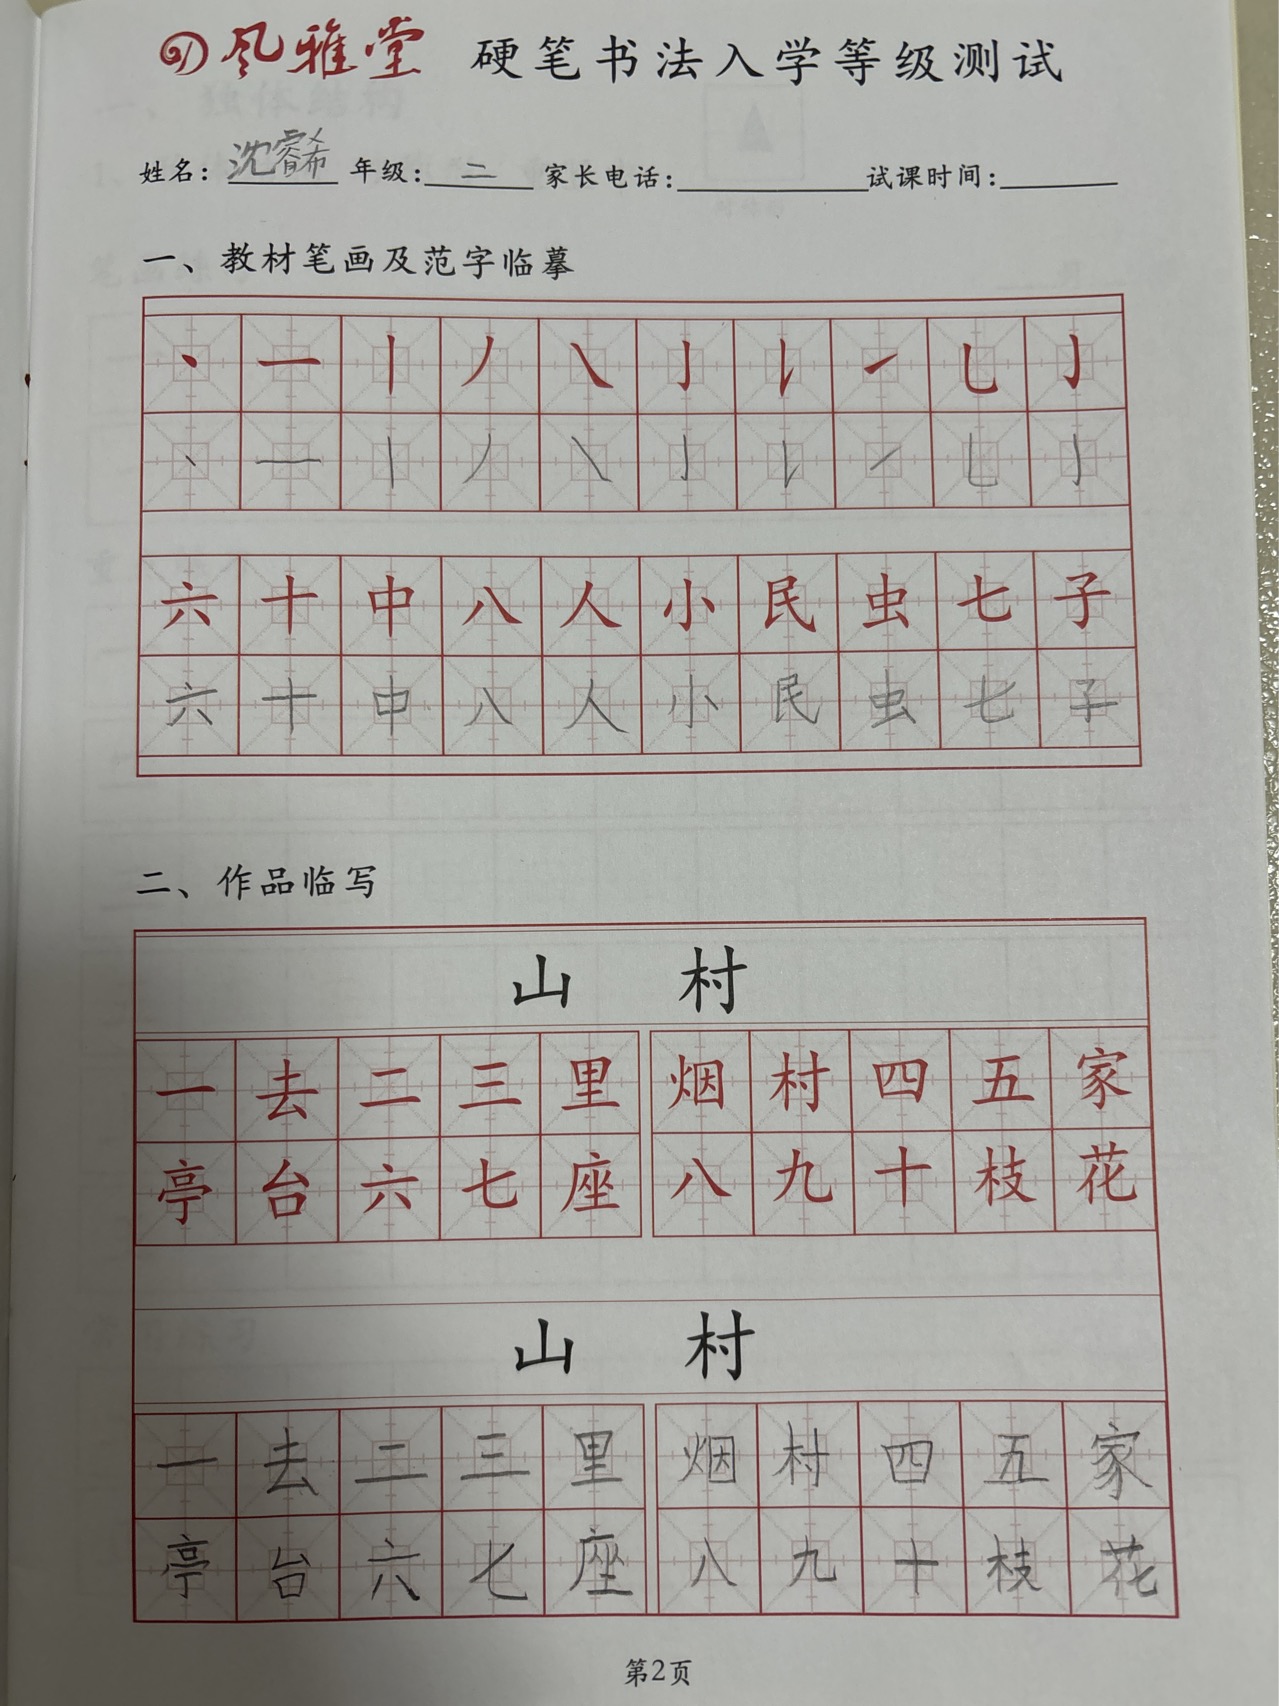 风雅堂 硬笔书法入学等级测试
姓名：沈睿希 年级：二 家长电话： 试课时间：
一、教材笔画及范字临摹
六十中八人小民虫七子
六十中八人小民虫七子
二、作品临写
山 村
一去二三里 烟村四五家
亭台六七座 八九十枝花
山 村
一去二三里 烟村四五家
亭台六七座 八九十枝花
第2页